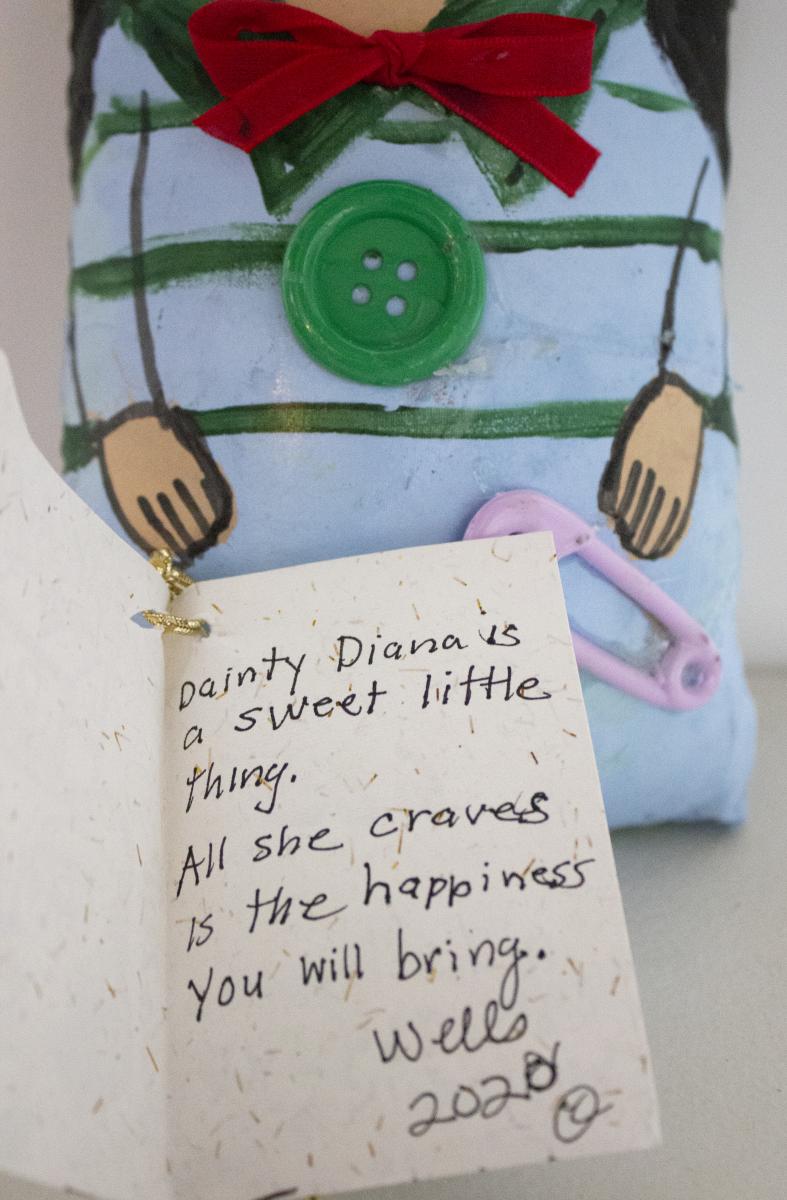 Dainty Diana is
a sweet little
thing.
All she craves
is the happiness
you will bring.
Wells